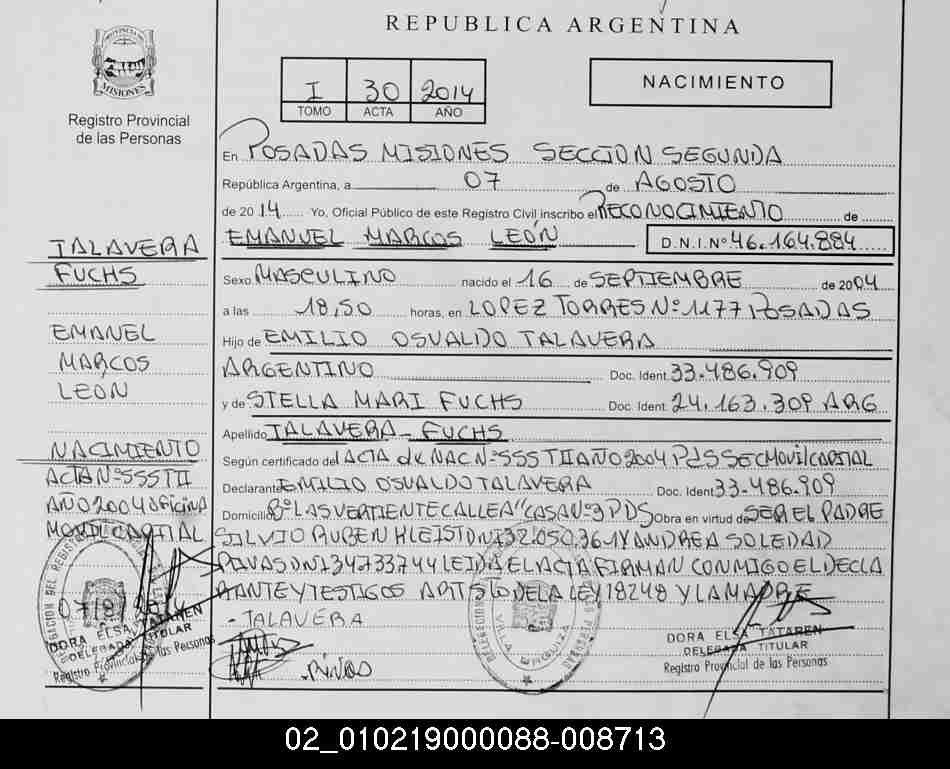 REPUBLICA ARGENTINA
PROVINCIA DE
MISIONES
Registro Provincial
de las Personas
I 30 2014
TOMO ACTA AÑO
NACIMIENTO
En POSADAS MISIONES SECCION SEGUNDA
República Argentina, a 07 de AGOSTO
de 2014 Yo, Oficial Público de este Registro Civil inscribo el RECONOCIMIENTO de
EMANUEL MARCOS LEÓN D.N.I.Nº 46.164.884
Sexo MASCULINO nacido el 16 de SEPTIEMBRE de 2004
a las 18,50 horas, en LOPEZ TORRES Nº 1177 POSADAS
Hijo de EMILIO OSVALDO TALAVERA
ARGENTINO Doc. Ident. 33.486.909
y de STELLA MARI FUCHS Doc. Ident. 24.163.309 ARG
Apellido TALAVERA - FUCHS
Según certificado del ACTA de NAC Nº 555 TII AÑO 2004 PdS SEC MOVIL CAPITAL
Declarante EMILIO OSVALDO TALAVERA Doc. Ident. 33.486.909
Domicilio Bº LAS VERTIENTE CALLE A" CASA Nº 3 PDS Obra en virtud de SER EL PADRE
SILVIO RUBEN KLEIST DNI 32.050.361 Y ANDREA SOLEDAD
RIVAS DNI 34733744 LEIDA EL ACTA FIRMAN CONMIGO EL DECLA
RANTE Y TESTIGOS ART 5TO DE LA LEY 18248 Y LA MADRE
- TALAVERA
RIVAS
DORA ELSA TATAREN
DELEGADA TITULAR
Registro Provincial de las Personas
VILLA URQUIZA
TALAVERA
FUCHS
EMANEL
MARCOS
LEON
NACIMIENTO
ACTA Nº 555 TII
AÑO 2004 Oficina
MOVIL CAPITAL
07/8/
DORA ELSA TATAREN
DELEGADA TITULAR
Registro Provincial de las Personas
02_010219000088-008713